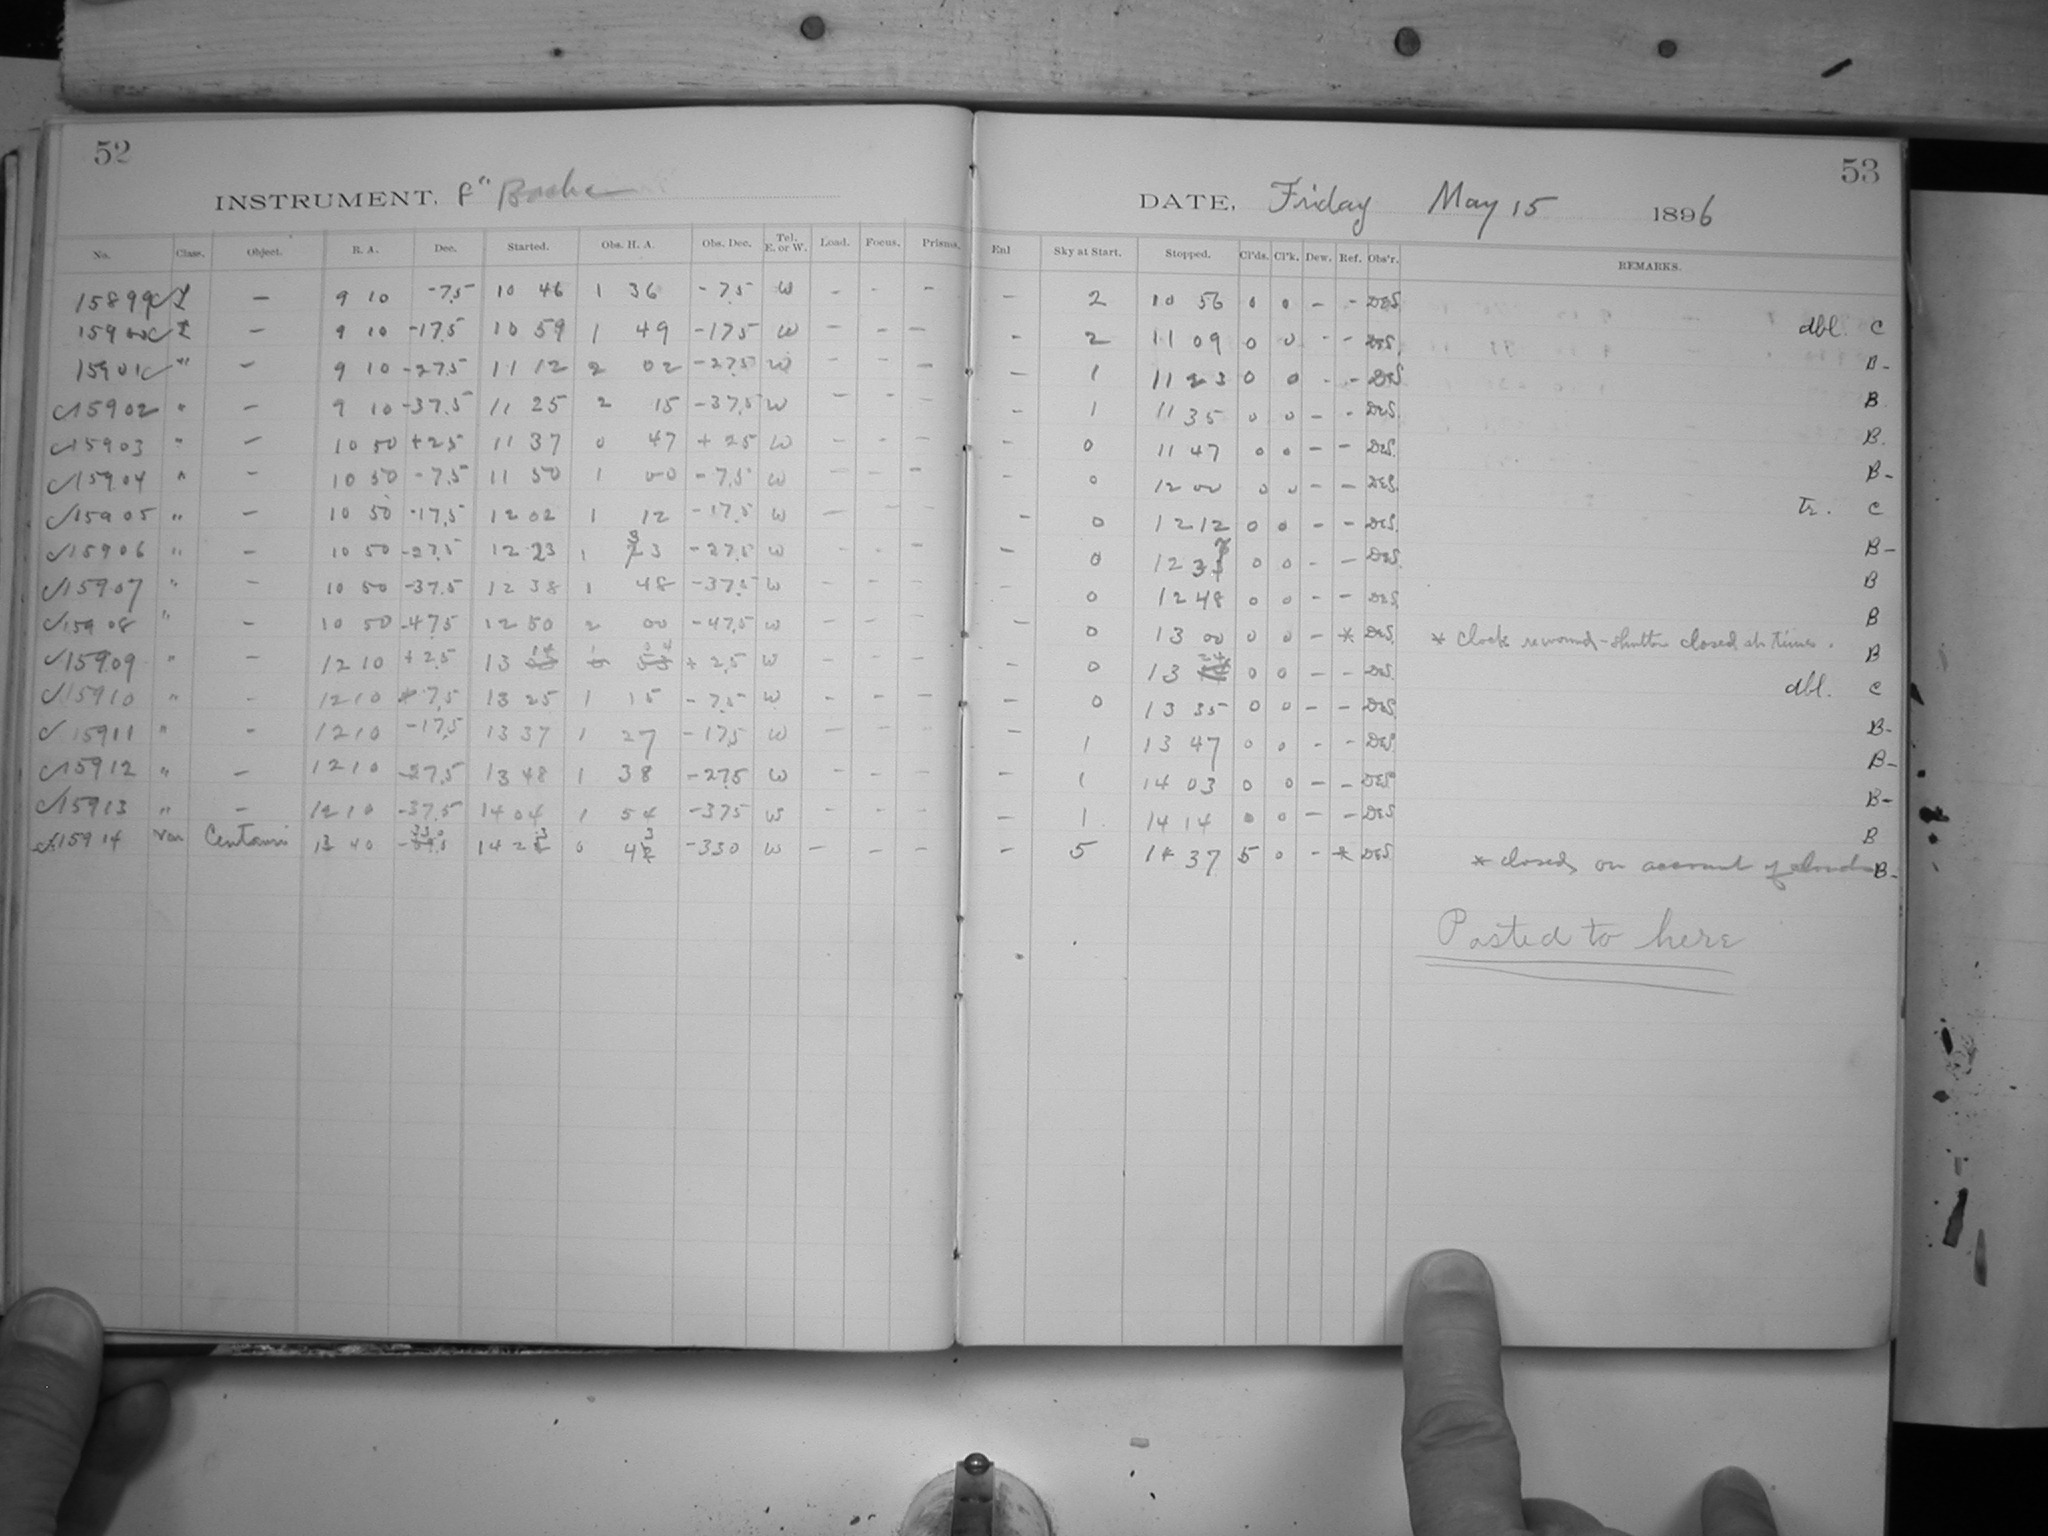 52
INSTRUMENT. 8" Bache
No. Class. Object. R. A. Dec. Started. Obs. H. A. Obs. Dec. Tel. E. or W. Load. Focus. Prisms.
15899 L — 9 10 -7.5 10 46 1 36 -7.5 W - - -
15900 L — 9 10 -17.5 10 59 1 49 -17.5 W - - -
15901 " — 9 10 -27.5 11 12 2 02 -27.5 W - - -
15902 " — 9 10 -37.5 11 25 2 15 -37.5 W - - -
15903 " — 10 50 +2.5 11 37 0 47 +2.5 W - - -
15904 " — 10 50 -7.5 11 50 1 00 -7.5 W - - -
15905 " — 10 50 -17.5 12 02 1 12 -17.5 W - - -
15906 " — 10 50 -27.5 12 23 1 33 -27.5 W - - -
15907 " — 10 50 -37.5 12 38 1 48 -37.5 W - - -
15908 " — 10 50 -47.5 12 50 2 00 -47.5 W - - -
15909 " — 12 10 +2.5 13 14 1 04 +2.5 W - - -
15910 " — 12 10 -7.5 13 25 1 15 -7.5 W - - -
15911 " — 12 10 -17.5 13 37 1 27 -17.5 W - - -
15912 " — 12 10 -27.5 13 48 1 38 -27.5 W - - -
15913 " — 12 10 -37.5 14 04 1 54 -37.5 W - - -
15914 Var Centauri 13 40 -33.0 14 23 0 43 -33.0 W - - -
53
DATE, Friday May 15 1896
Enl Sky at Start. Stopped. Cl'ds. Cl'k. Dew. Ref. Obs'r. REMARKS.
- 2 10 56 0 0 - - DES. dbl. C
- 2 11 09 0 0 - - DES. B-
- 1 11 23 0 0 - - DES B
- 1 11 35 0 0 - - DES. B.
- 0 11 47 0 0 - - DES. B-
- 0 12 00 0 0 - - DES. Tr. C
- 0 12 12 0 0 - - DES. B-
- 0 12 37 0 0 - - DES. B
- 0 12 48 0 0 - - DES. B
- 0 13 00 0 0 - * DES. * Clock rewound - shutter closed at times. B
- 0 13 24 0 0 - - DES. dbl. C
- 0 13 35 0 0 - - DES. B-
- 1 13 47 0 0 - - DES. B-
- 1 14 03 0 0 - - DES B-
- 1 14 14 0 0 - - DES B
- 5 14 37 5 0 - * DES. * closed on account of clouds B-
Posted to here